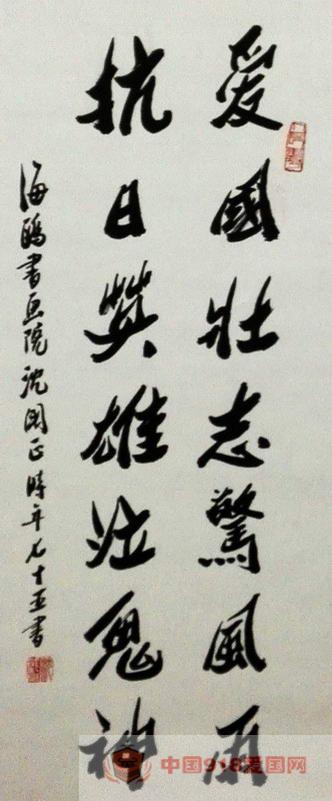 爱國壮志驚風雨
抗日英雄泣鬼神
海鸥書画院沈国正時年七十五書
中国918爱国网